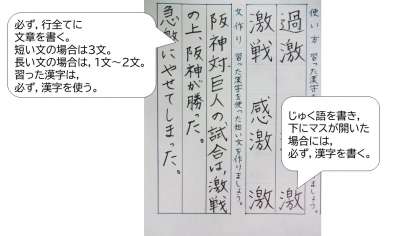 必ず，行全てに
文章を書く。
短い文の場合は3文。
長い文の場合は，1文～2文。
習った漢字は，
必ず，漢字を使う。
使い方 習った漢字
ましょう。
過激 激
激戦 感激 激
文作り 習った漢字を使った短い文を作りましょう。
阪神対巨人の試合は、激戦
の上、阪神が勝った。
急激にやせてしまった。
じゅく語を書き，
下にマスが開いた
場合には，
必ず，漢字を書く。